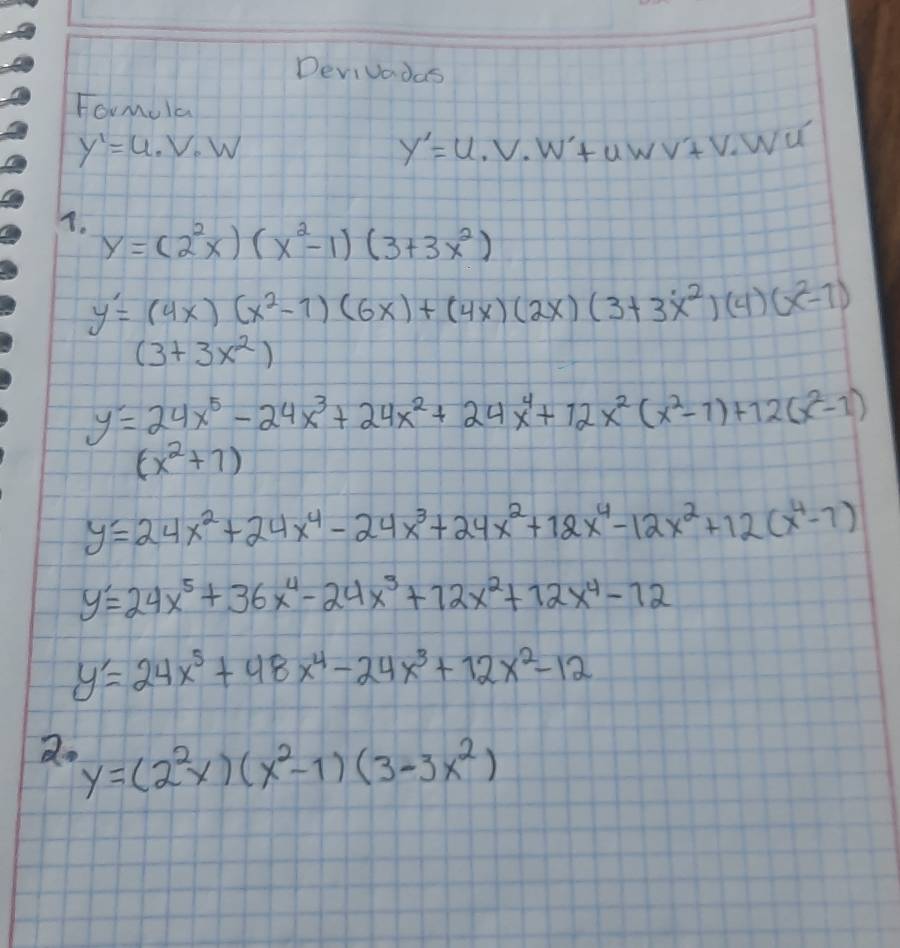 Derivadas
Formula
y'=u.v.w y'=u.v.w'+uwv'+v.wu'
1. y=(2²x)(x²-1)(3+3x²)
y'=(4x)(x²-1)(6x)+(4x)(2x)(3+3x²)(4)(x²-1)
(3+3x²)
y'=24x⁵-24x³+24x²+24x⁴+12x²(x²-1)+12(x²-1)
(x²+1)
y'=24x²+24x⁴-24x³+24x²+12x⁴-12x²+12(x⁴-1)
y'=24x⁵+36x⁴-24x³+12x²+12x⁴-12
y'=24x⁵+48x⁴-24x³+12x²-12
2. y=(2²x)(x²-1)(3-3x²)